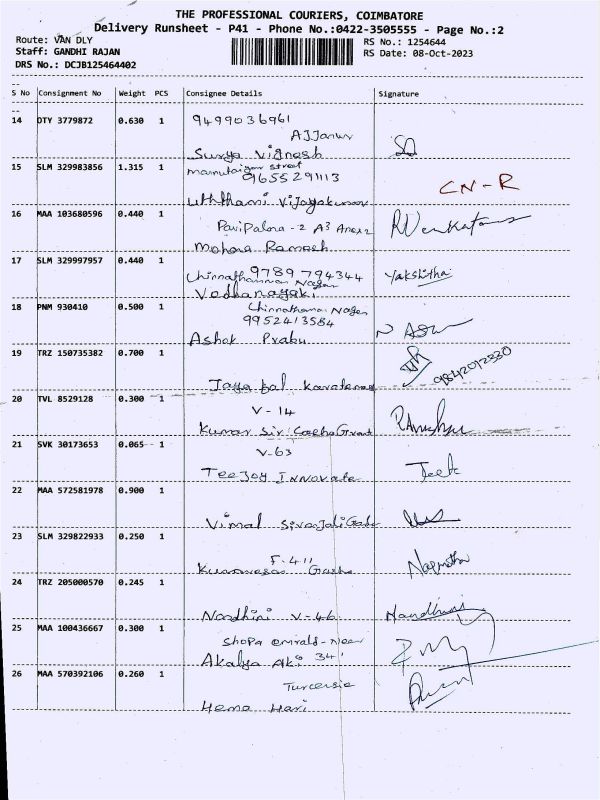 THE PROFESSIONAL COURIERS, COIMBATORE
Delivery Runsheet - P41 - Phone No.:0422-3505555 - Page No.:2
Route: VAN DLY
RS No.: 1254644
Staff: GANDHI RAJAN
RS Date: 08-Oct-2023
DRS No.: DCJB125464402
S No Consignment No Weight PCS Consignee Details Signature
14 DTY 3779872 0.630 1 9499036961
Surya Vignesh
15 SLM 329983856 1.315 1 street
9655291113
CN-R
Uththami Vijayakumar
16 MAA 103680596 0.440 1 PariPalna-2 A3
RVenkatans
Ramesh
17 SLM 329997957 0.440 1 9789794344 Yakshitha
Nagar
Vedhanayaki
18 PNM 930410 0.500 1 Nagar
9952413584
Ashok Prabu
19 TRZ 150735382 0.700 1
Jaya bal
20 TVL 8529128 0.300 1 V-14
Kumar Sir
21 SVK 30173653 0.065 1 V-63
TeeJoy INNovate Jeek
22 MAA 572581978 0.900 1
Vimal
23 SLM 329822933 0.250 1 F-411
24 TRZ 205000570 0.245 1
Nandhini V-46 Nandhini
25 MAA 100436667 0.300 1 Shopa emrald-near
Akalya 341
26 MAA 570392106 0.260 1
Hema Hari